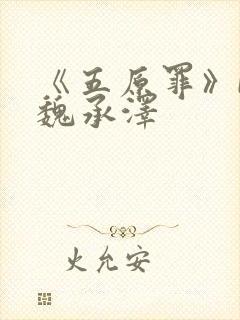 《五原罪》
魏承泽
火允安